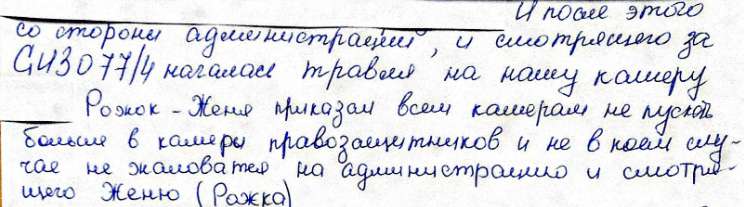 И после этого
со стороны администрации, и смотрящего за
СИЗО 77/4 началась травля на нашу камеру
Рожок - Женя приказал всем камерам не пускать
больше в камеры правозащитников и не в коем слу-
чае не жаловатся на администрацию и смотря-
щего Женю (Рожка)